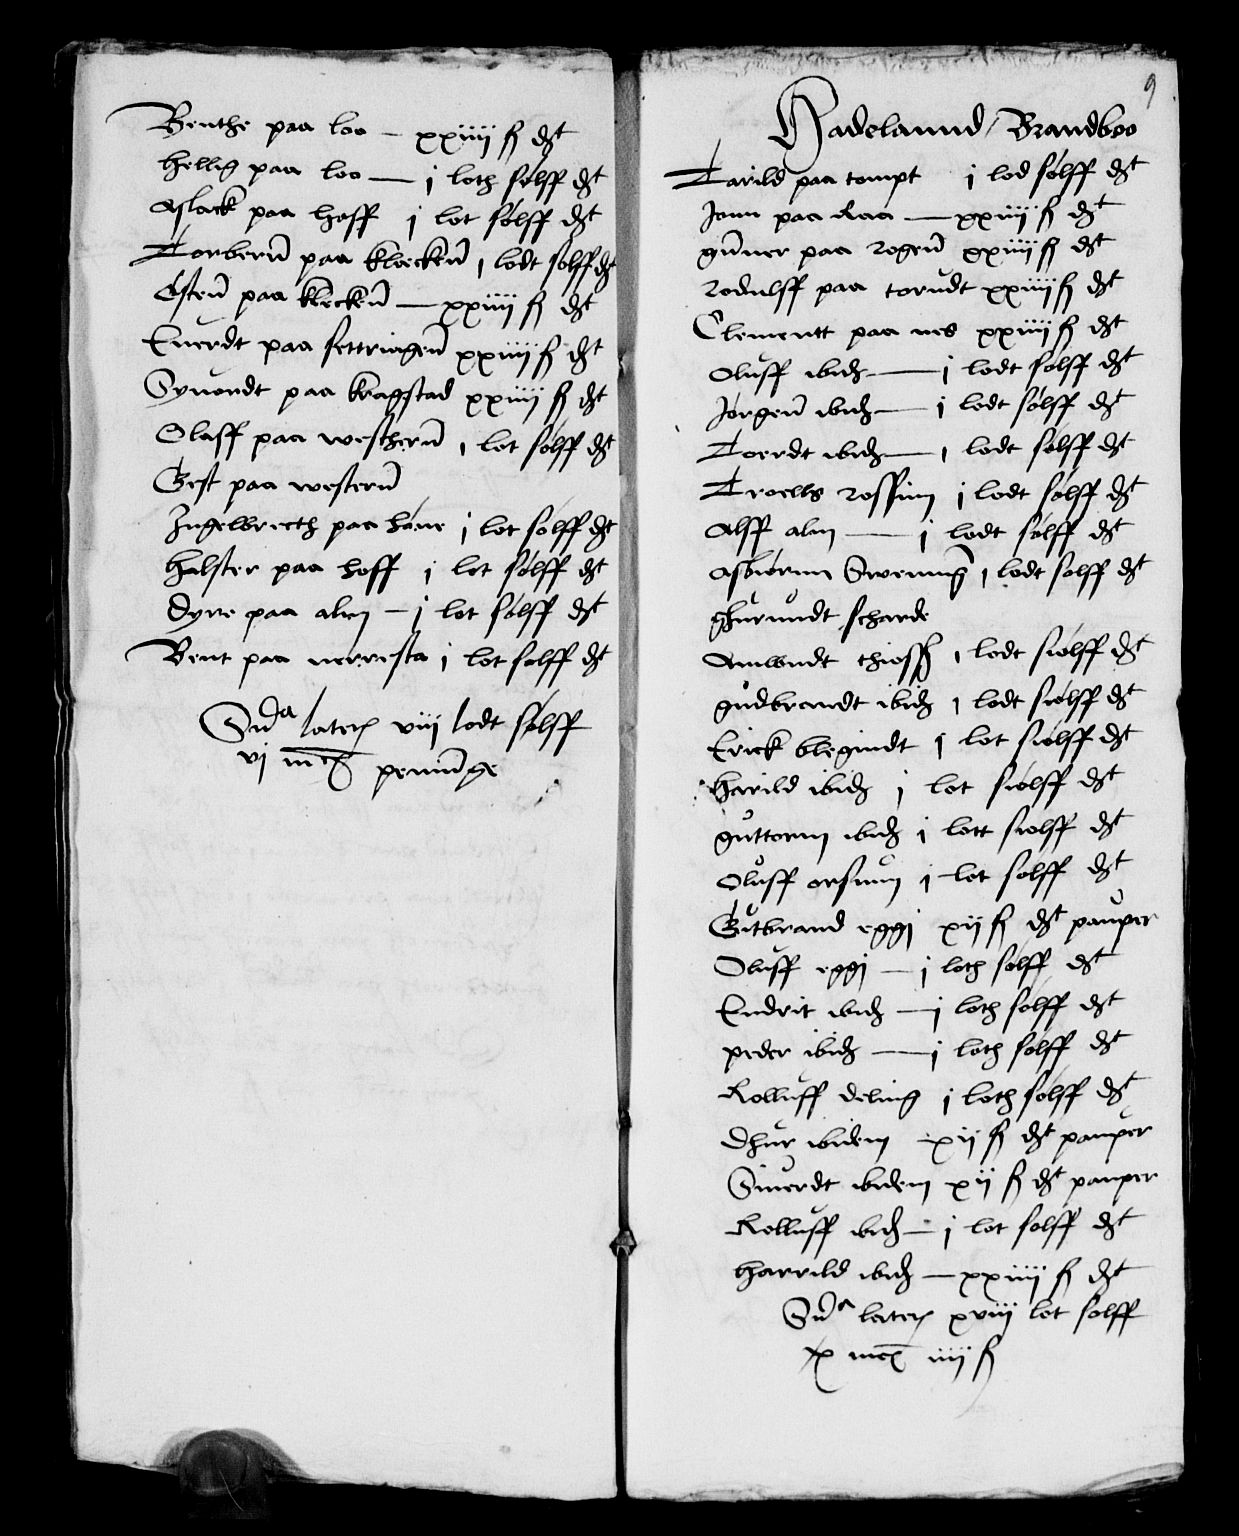 Benthe paa loo — xxiiii ß dt
Hellig paa loo — j loth sølff dt
Aslack paa hoff j lot sølff dt
Torbernn paa kleckenn 1 lodt sølff dt
Østenn paa kleckenn — xxiiii ß dt
Euerdt paa settringenn xxiiii ß dt
Syuordt paa kragstad xxiiii ß dt
Olaff paa westhernn 1 lot sølff dt
Gest paa westernn
Ingelbrecth paa haue j lot sølff dt
Halster paa hoff j lot sølff dt
Dyrre paa alm — j lot sølff dt
Bent paa nerresta j lot sølff dt
Suma lateris viij lodt sølff
vj mck pennige
9
Hadelannd / Brandboo
Tarild paa tompt j lod sølff dt
Jonn paa Raa — xxiiii ß dt
gunner paa rogenn xxiiii ß dt
Rodulff paa torudt xxiiii ß dt
Clementt paa nes xxiiii ß dt
Oluff ibid — j lodt sølff dt
Jørgenn ibid — j lodt sølff dt
Toerdt ibid — 1 lodt sølff dt
Troells rossum j lodt sølff dt
Alff alm — j lodt sølff dt
Asbiørnn Swenning 1 lodt sølff dt
ghurundt scharde
Amundt thioss 1 lodt siølff dt
gudbrandt ibid 1 lodt siølff dt
Erick blegindt j lot siølff dt
Harild ibid j lot siølff dt
guttorm ibid j lott siølff dt
Oluff orsuum j lot sølff dt
Gutbrand eggj xij ß dt pauper
Oluff eggj — j loth sølff dt
Endrit ibid — j loth sølff dt
peder ibid — j loth sølff dt
Rolluff deling j loth sølff dt
Dhur ibidem xij ß dt pauper
Siuerdt ibidem xij ß dt pauper
Rolluff ibid — j lot sølff dt
Harrild ibid — xxiiii ß dt
Suma lateris xviij lot sølff
x mck iiij ß